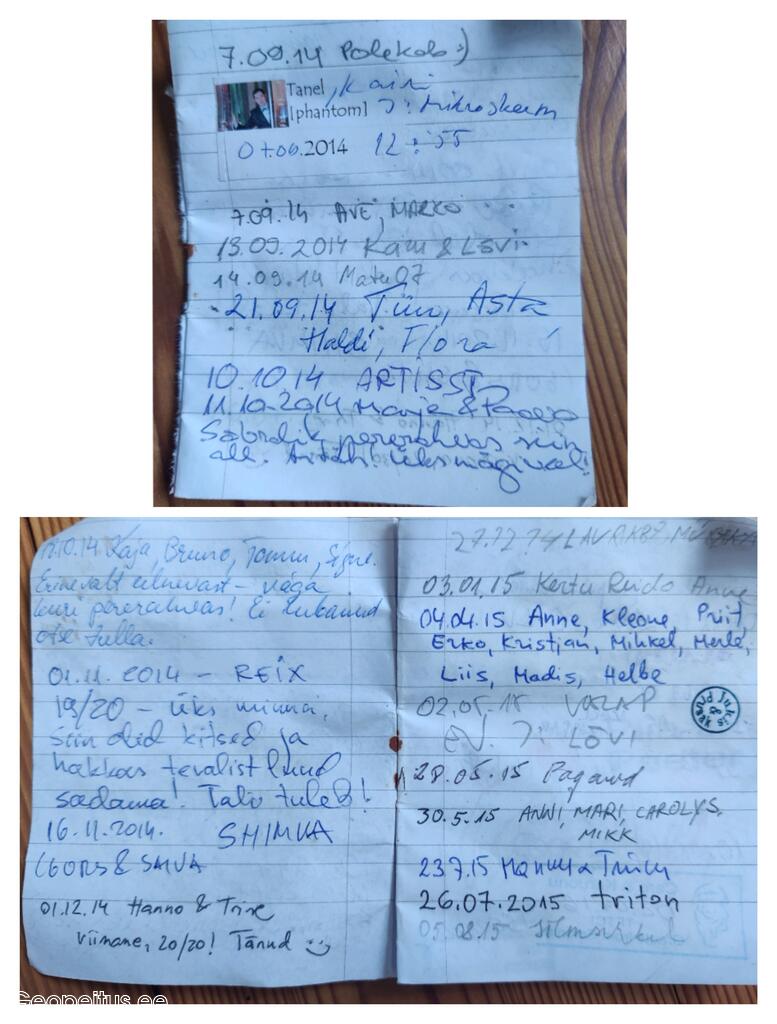 7.09.14 Polekob :)
Tanel, Kairi
[phantom] J: Mikroskeem
07.06.2014 12:55
7.09.14 AVE, MARKO
13.09.2014 Käm & Lõvi
14.09.14 Matu07
21.09.14 Tiiu, Asta
Haldi, Flora
10.10.14 ARTISST
11.10.2014 Marje & Paavo
Sõbralik pererahvas siin
all. Aitäh! üks mägi veel!
10.14 Kaja, Bruno, Tommi, Signe.
Erinevalt eelnevast – väga
kuri pererahvas! Ei lubanud
otse tulla.
01.11.2014 – REIX
19/20 – üks minna,
siin olid kitsed ja
hakkas tevalist lund
sadama! Talv tuleb!
16.11.2014. SHIMVA
& SMVA
01.12.14 Hanno & Trine
Viimane, 20/20! Tänud
27.12.14
03.01.15 Kertu Reido Anne
04.04.15 Anne, Kleone, Priit,
Erko, Kristjan, Mihkel, Merle,
Liis, Madis, Helbe
02.05.15
J: LÕVI
28.05.15 Paganid
30.5.15 ANNI, MARI, CAROLYS,
MIKK
23.7.15
26.07.2015 triton
05.08.15 Silmsirkel
Geopeitus.ee